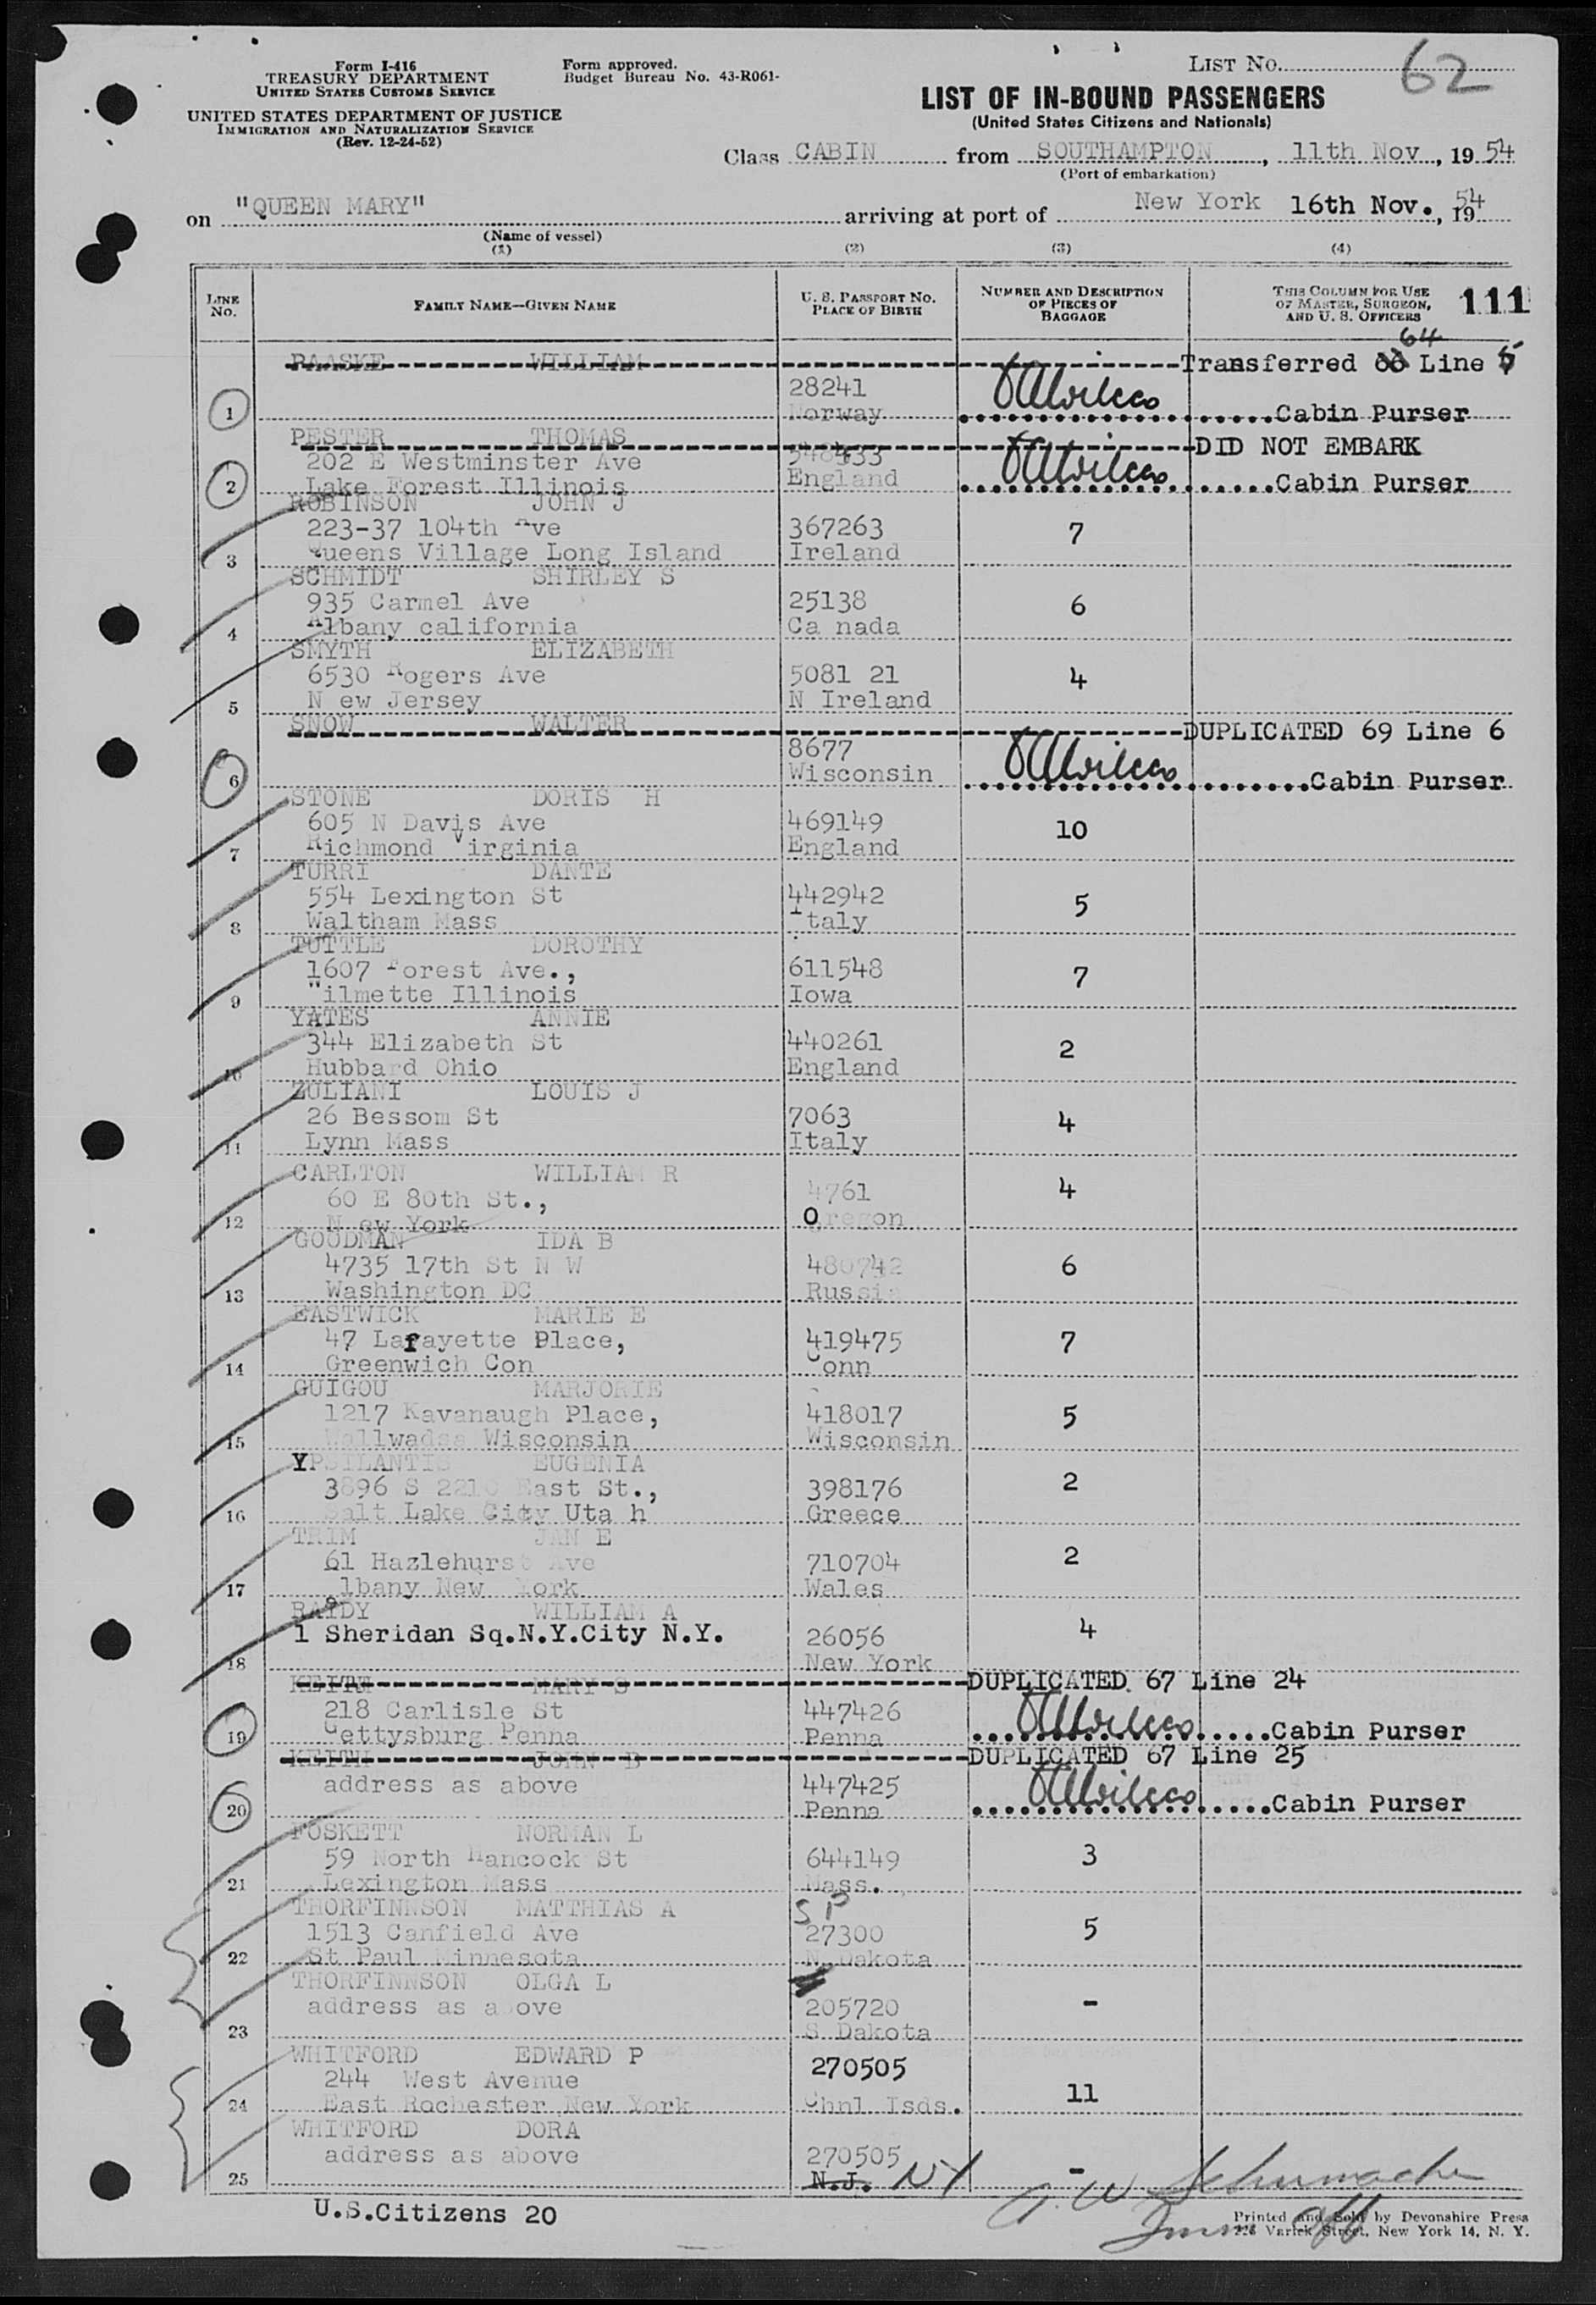 Form I-416
TREASURY DEPARTMENT
UNITED STATES CUSTOMS SERVICE
UNITED STATES DEPARTMENT OF JUSTICE
IMMIGRATION AND NATURALIZATION SERVICE
(Rev. 12-24-52)
Form approved.
Budget Bureau No. 43-R061-
LIST No. 62
LIST OF IN-BOUND PASSENGERS
(United States Citizens and Nationals)
Class CABIN from SOUTHAMPTON, 11th Nov, 1954
(Port of embarkation)
on "QUEEN MARY" arriving at port of New York 16th Nov., 1954
(Name of vessel)
(1) (2) (3) (4)
LINE No. FAMILY NAME—GIVEN NAME U. S. PASSPORT NO. PLACE OF BIRTH NUMBER AND DESCRIPTION OF PIECES OF BAGGAGE THIS COLUMN FOR USE OF MASTER, SURGEON, AND U. S. OFFICERS 111
RAASKE WILLIAM Transferred 64 Line 5
28241
1 Norway Cabin Purser
PESTER THOMAS DID NOT EMBARK
202 E Westminster Ave 548433
2 Lake Forest Illinois England Cabin Purser
ROBINSON JOHN J
223-37 104th Ave 367263 7
3 Queens Village Long Island Ireland
SCHMIDT SHIRLEY S
935 Carmel Ave 25138 6
4 Albany california Ca nada
SMYTH ELIZABETH
6530 Rogers Ave 5081 21 4
5 N ew Jersey N Ireland
SNOW WALTER DUPLICATED 69 Line 6
8677
6 Wisconsin Cabin Purser
STONE DORIS H
605 N Davis Ave 469149 10
7 Richmond Virginia England
TURRI DANTE
554 Lexington St 442942 5
8 Waltham Mass Italy
TUTTLE DOROTHY
1607 Forest Ave., 611548 7
9 Wilmette Illinois Iowa
YATES ANNIE
344 Elizabeth St 440261 2
10 Hubbard Ohio England
ZULIANI LOUIS J
26 Bessom St 7063 4
11 Lynn Mass Italy
CARLTON WILLIAM R
60 E 80th St., 4761 4
12 N ew York Oregon
GOODMAN IDA B
4735 17th St N W 480742 6
13 Washington DC Russia
EASTWICK MARIE E
47 Lafayette Place, 419475 7
14 Greenwich Con Conn
GUIGOU MARJORIE
1217 Kavanaugh Place, 418017 5
15 Wisconsin Wisconsin
YPSILANTIS EUGENIA
3896 S East St., 398176 2
16 Salt Lake City Uta h Greece
TRIM JAN E
61 Hazlehurst Ave 710704 2
17 albany New York Wales
RAIDY WILLIAM A
1 Sheridan Sq.N.Y.City N.Y. 26056 4
18 New York
KEITH MARY S DUPLICATED 67 Line 24
218 Carlisle St 447426
19 Gettysburg Penna Penna Cabin Purser
KEITH JOHN B DUPLICATED 67 Line 25
address as above 447425
20 Penna Cabin Purser
FOSKETT NORMAN L
59 North Hancock St 644149 3
21 Lexington Mass Mass.
THORFINNSON MATTHIAS A SP
1513 Canfield Ave 27300 5
22 St Paul Minnesota N. Dakota
THORFINNSON OLGA L
address as above 205720 -
23 S Dakota
WHITFORD EDWARD P 270505
244 West Avenue 11
24 East Rochester New York Chnl Isds.
WHITFORD DORA
address as above 270505 -
25 N.J. NY
U.S.Citizens 20
A. W Schumacher
Imm Off
Printed and Sold by Devonshire Press
Varick Street, New York 14, N. Y.